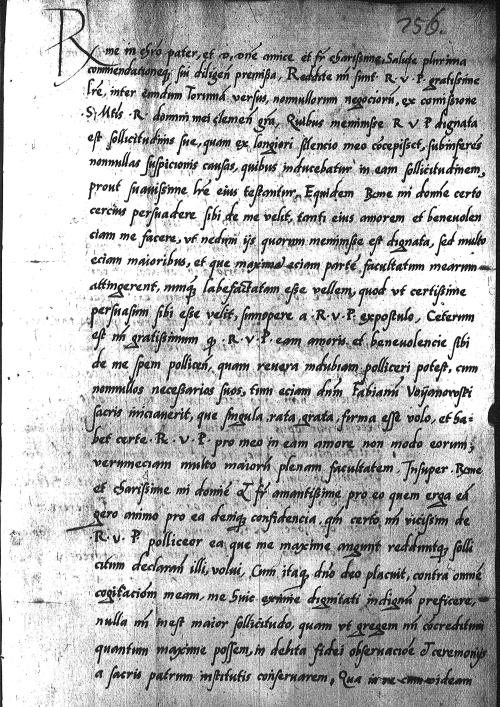 256.
Rme in chro pater, et d, dne amice et fr charissime. Salute plurima
commendacioneq; sui diligen premissa, Reddite mi sunt R. v. P. gratissime
lre, inter eundum Torunia versus, nonnullorum negocioru, ex comissione
S. Mtis R. domini mei clemen gra, Quibus meminisse R v P dignata
est sollicitudinis sue, quam ex longiori silencio meo cocepisset, subinferes
nonnullas suspicionis causas, quibus inducebatur in eam sollicitudinem,
prout suavissime lre eius testantur, Equidem Rme mi domine certo
cercius persuadere sibi de me velit, tanti eius amorem et benevolen
ciam me facere, vt nedum ijs quorum meminisse est dignata, sed multo
eciam maioribus, et que maxime eciam parte facultatum mearum
attingerent, nunq labefactatam esse vellem, quod vt certissime
persuasum sibi esse velit, summopere a R. v. P. expostulo, Ceterum
est mi gratissimum q R. v. P. eam amoris et benevolencie sibi
de me spem pollicen, quam revera indubiam polliceri potest, cum
nonnullos necessarios suos, tum eciam dnm Fabianu Voijanovski
sacris iniciaverit, que singula rata, grata, firma esse volo, et ha=
bet certe R. v. P. pro meo in eam amore non modo eorum,
verumeciam multo maioru plenam facultatem. Insuper Rme
et charissime mi domine & fr amantissime pro eo quem erga ea
gero animo pro ea deniq; confidencia, qm certo mi vicissim de
R. v. P polliceor ea que me maxime angunt redduntq; solli
citum declaram illi, volui, Cum itaq, dno deo placuit, contra omne
cogitacionem meam, me huic eximie dignitati indignu preficere,
nulla mi inest maior sollicitudo, quam vt gregem mi cocreditum
quantum maxime possem, in debita fidei observacioe & ceremonijs
a sacris patrum institutis conservarem, Qua in re cum videam